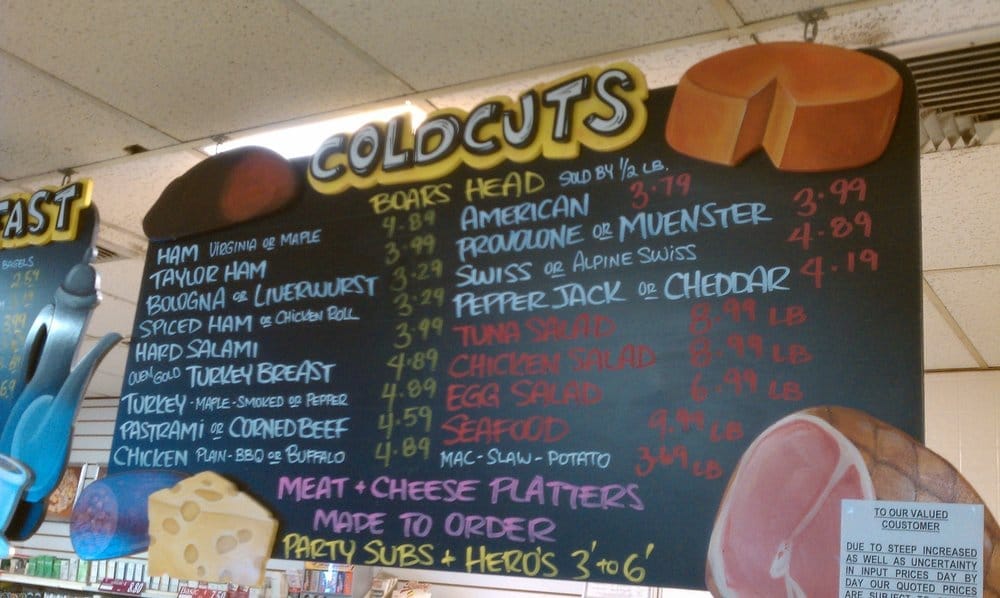 FAST
BAGELS
COLDCUTS
BOARS HEAD SOLD BY 1/2 LB.
HAM VIRGINIA OR MAPLE 4.89
TAYLOR HAM 3.99
BOLOGNA OR LIVERWURST 3.29
SPICED HAM OR CHICKEN ROLL 3.29
HARD SALAMI 3.99
OVENGOLD TURKEY BREAST 4.89
TURKEY - MAPLE - SMOKED OR PEPPER 4.89
PASTRAMI OR CORNED BEEF 4.59
CHICKEN PLAIN - BBQ OR BUFFALO 4.89
AMERICAN 3.79
PROVOLONE OR MUENSTER 3.99
SWISS OR ALPINE SWISS 4.89
PEPPER JACK OR CHEDDAR 4.19
TUNA SALAD 8.99 LB
CHICKEN SALAD 8.99 LB
EGG SALAD 6.99 LB
SEAFOOD 9.99 LB
MAC - SLAW - POTATO 3.69 LB
MEAT + CHEESE PLATTERS
MADE TO ORDER
PARTY SUBS + HERO'S 3' TO 6'
TO OUR VALUED
COUSTOMER
DUE TO STEEP INCREASED
AS WELL AS UNCERTAINTY
IN INPUT PRICES DAY BY
DAY OUR QUOTED PRICES
ARE SUBJECT